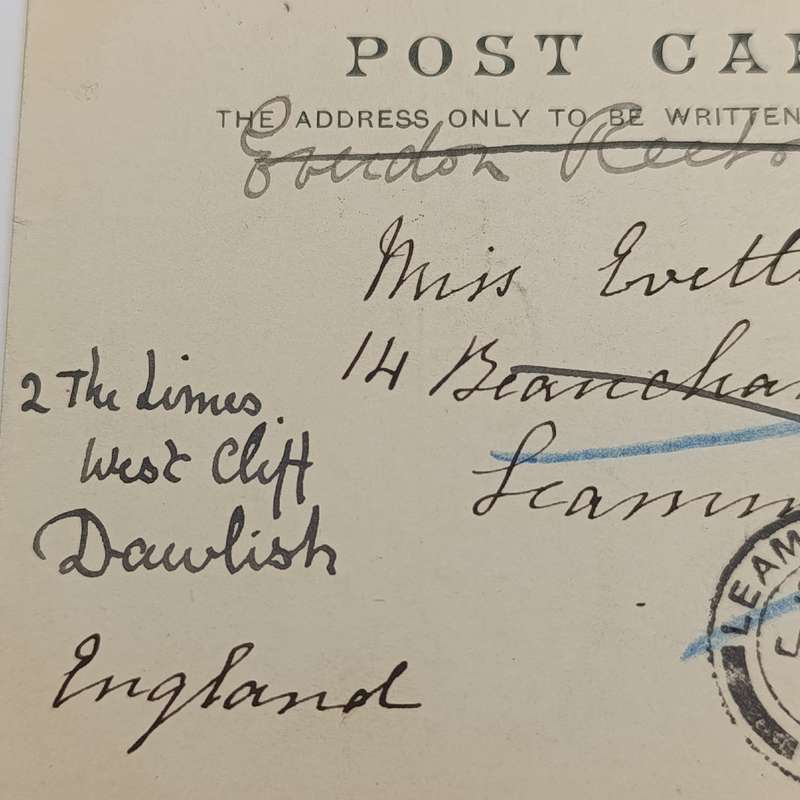 POST CA
THE ADDRESS ONLY TO BE WRITTEN
Miss Evett
14 Beaucha
Leam
2 The Limes
West Cliff
Dawlish
England
LEAM